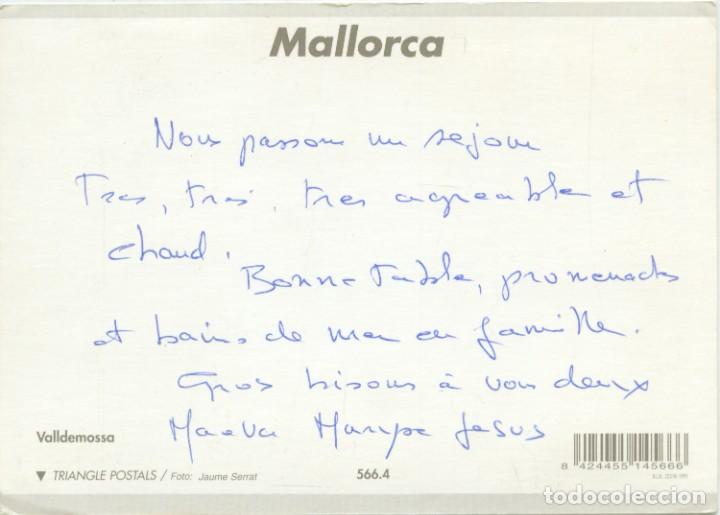 Mallorca
Nous passons un sejour
Tres, tres, tres agreable et
chaud.
Bonne table, promenades
et bains de mer en famille.
Gros bisous à vous deux
Maeva Maripe Jesus
Valldemossa
▼ TRIANGLE POSTALS / Foto: Jaume Serrat
566.4
8 424455 145666
todocoleccion